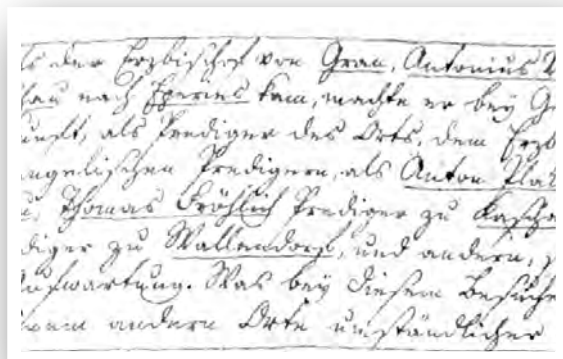 der Erzbischof von Gran, Antonius
nach Eperies kam, machte er bey
als Prediger des Orts, dem Erzb
angelischen Predigern, als Anton Plat
Thomas Fröhlich Prediger zu Kascha
diger zu Wallendorf, und andern,
Aufwartung. Was bey diesem Besuche
andern Orte umständlicher